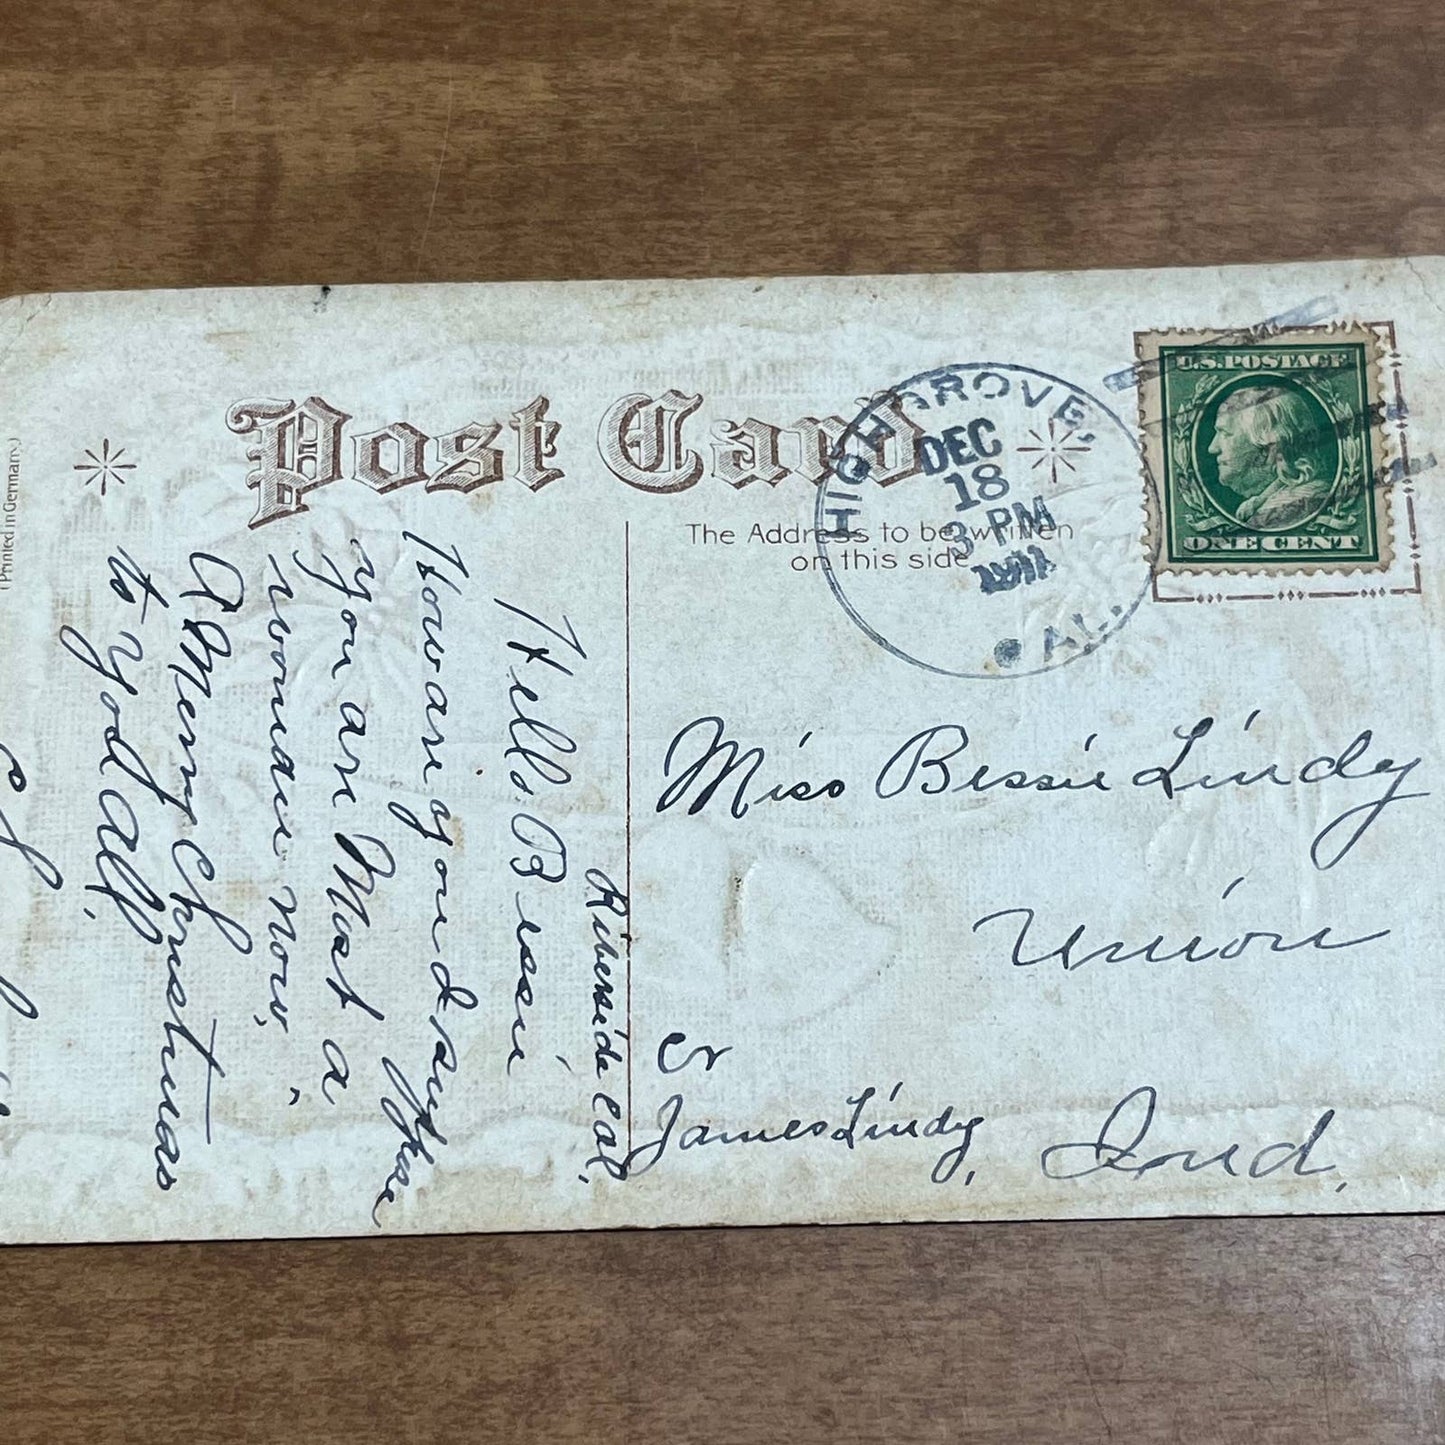 Post Card
(Printed in Germany.)
The Address to be written
on this side
HIGHGROVE,
DEC
18
3 PM
1911
CAL.
U.S. POSTAGE
ONE CENT
Riverside Cal,
Hello Bessie
How are you I suppose
you are Most a
woman now,
A Merry Christmas
to you All,
Miss Bessie Lindy
Union
Cr
James Lindy,
Ind,